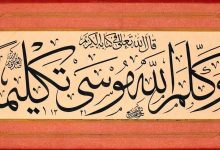 قال الله تعالى في كتابه الكريم
وكلم الله موسى تكليما